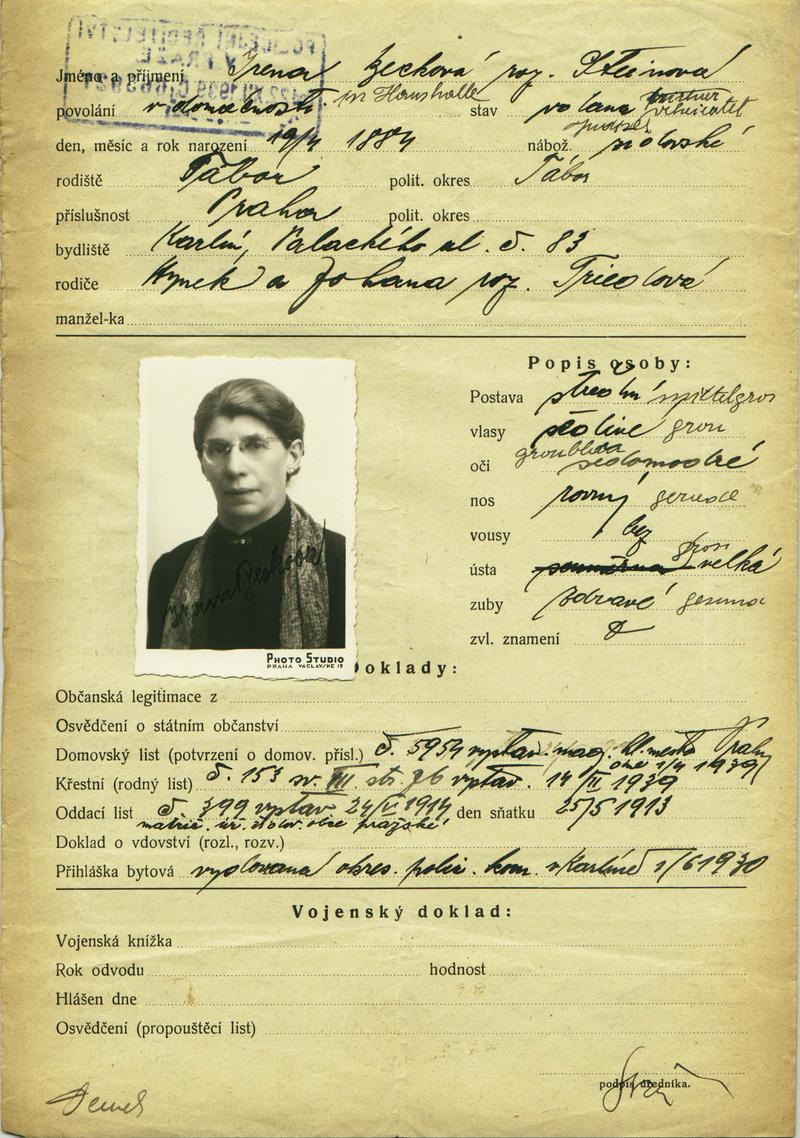 Jméno a příjmení Irena Becková roz. Steinová
povolání v domácnosti in Haushalte stav vdaná
den, měsíc a rok narození 19/4 1884 nábož. židovské
rodiště Tábor polit. okres Tábor
příslušnost Praha polit. okres
bydliště Karlín, Palackého ul. č. 83
rodiče Hynek a Johana roz.
manžel-ka
Popis osoby:
Postava střední
vlasy šedivé grau
oči graublau šedomodré
nos rovný gerade
vousy bez
ústa gross velká
zuby zdravé gesund
zvl. znamení
Irena Becková
PHOTO STUDIO
PRAHA VÁCLAVSKÉ 19
Doklady:
Občanská legitimace z
Osvědčení o státním občanství
Domovský list (potvrzení o domov. přísl.) č. 5954 vystav. mag. hl. města Prahy
dne 1/4 1939
Křestní (rodný list) č. 153 sv. III str. 76 vystav. 14/II 1939
Oddací list č. 399 vystav 24/V 1914 den sňatku 25/5 1913
matrič. úř. židov. obce pražské
Doklad o vdovství (rozl., rozv.)
Přihláška bytová vydovaná okres. polic. kom. v Karlíně 1/6 1930
Vojenský doklad:
Vojenská knížka
Rok odvodu hodnost
Hlášen dne
Osvědčení (propouštěcí list)
podpis úředníka.